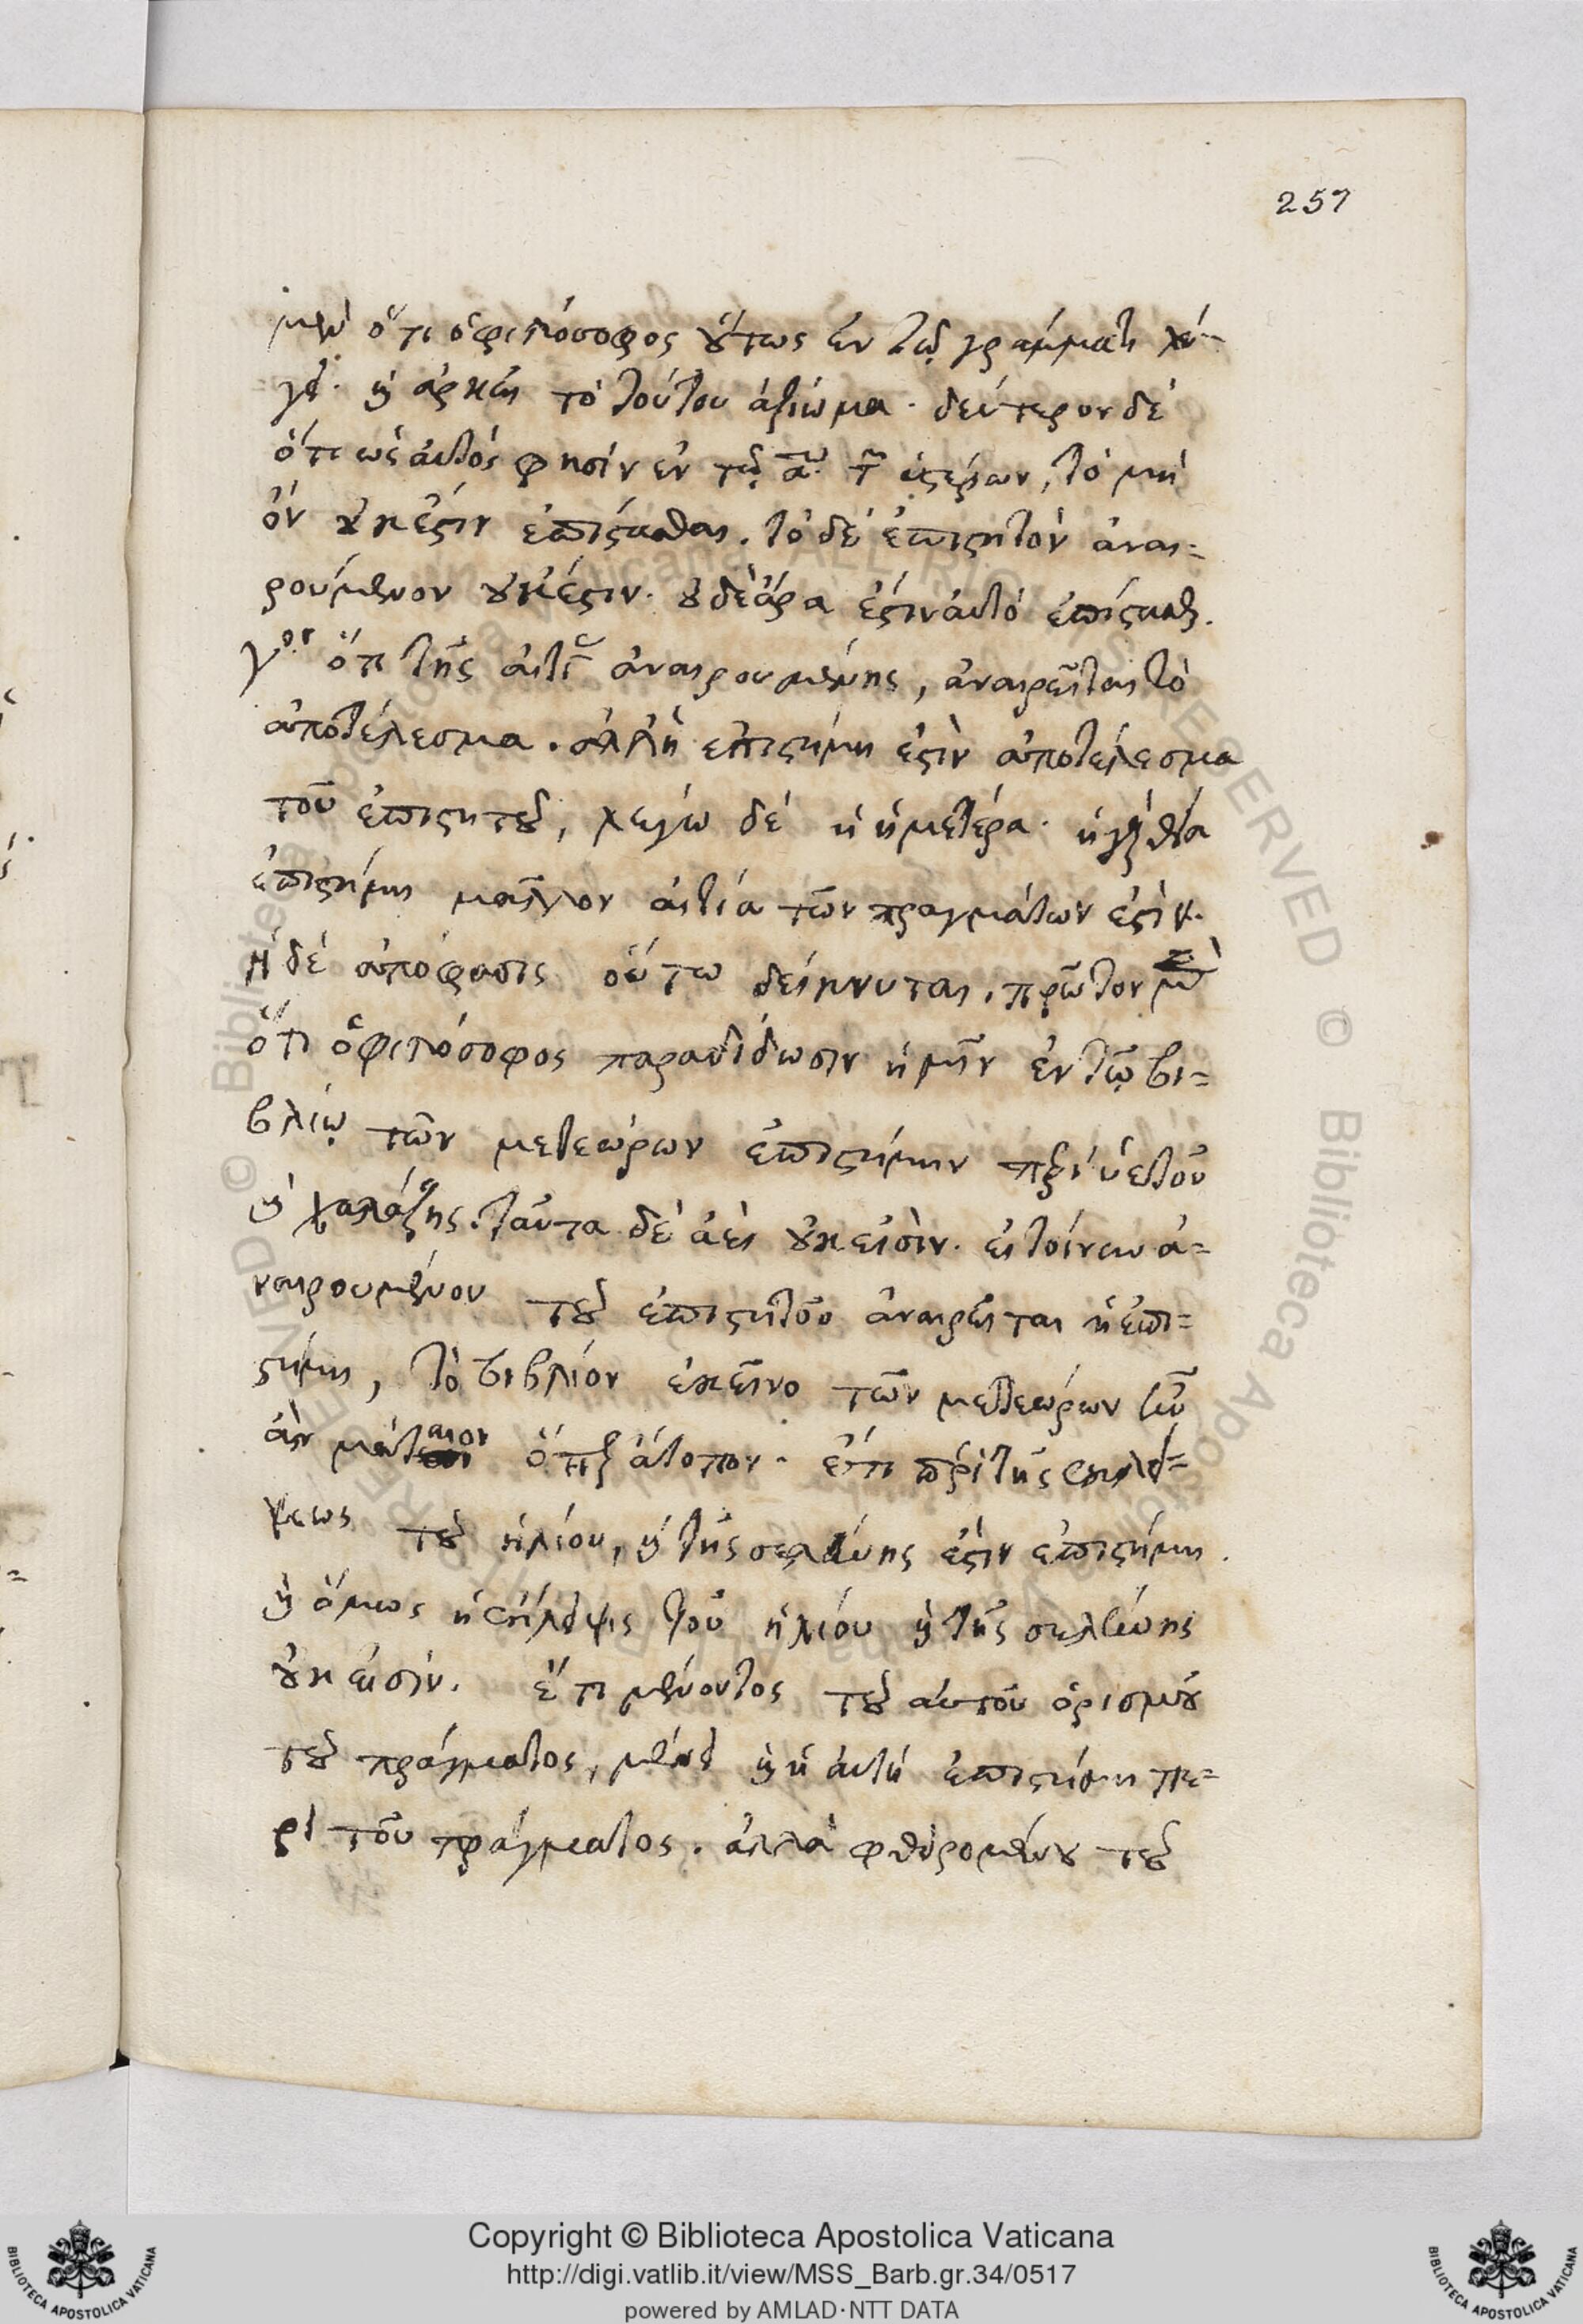 257
μὲν ὅτι ὁ φιλόσοφος οὕτως ἐν τῷ γράμματι λέ-
γει. καὶ ἀρκεῖ τὸ τούτου ἀξίωμα. δεύτερον δὲ
ὅτι ὡς αὐτός φησὶν ἐν τῷ αω τῶν ὑστέρων, τὸ μὴ
ὂν οὐκ ἔστιν ἐπίστασθαι. τὸ δὲ ἐπιστητὸν ἀναι=
ρούμενον οὐκ ἔστιν. οὐδὲ ἄρα ἐστὶν αὐτὸ ἐπίστασθαι.
γον ὅτι τῆς αἰτίας ἀναιρουμένης, ἀναιρεῖται τὸ
ἀποτέλεσμα. ἀλλ' ἡ ἐπιστήμη ἐστὶν ἀποτέλεσμα
τοῦ ἐπιστητοῦ, λέγω δὲ ἡ ἡμετέρα. ἡ γὰρ θεία
ἐπιστήμη μᾶλλον αἰτία τῶν πραγμάτων ἐστίν.
ἡ δὲ ἀπόφασις οὕτω δείκνυται. πρῶτον μὲν
ὅτι ὁ φιλόσοφος παραδίδωσιν ἡμῖν ἐν τῷ βι=
βλίῳ τῶν μετεώρων ἐπιστήμην περὶ ὑετοῦ
καὶ χαλάζης. ταῦτα δὲ ἀεὶ οὐκ εἰσίν. εἰ τοίνυν ἀ=
ναιρουμένου τοῦ ἐπιστητοῦ ἀναιρεῖται ἡ ἐπι=
στήμη, τὸ βιβλίον ἐκεῖνο τῶν μετεώρων ἦν
ἂν μάταιον ὅπερ ἄτοπον. ἔτι περὶ τῆς ἐκλεί=
ψεως τοῦ ἡλίου, καὶ τῆς σελήνης ἐστὶν ἐπιστήμη.
καὶ ὅμως ἡ ἔκλειψις τοῦ ἡλίου καὶ τῆς σελήνης
οὐκ εἰσίν. ἔτι μένοντος τοῦ αὐτοῦ ὁρισμοῦ
τοῦ πράγματος, μένει καὶ ἡ αὐτὴ ἐπιστήμη πε=
ρὶ τοῦ πράγματος. ἀλλὰ φθειρομένου τοῦ
Copyright © Biblioteca Apostolica Vaticana
http://digi.vatlib.it/view/MSS_Barb.gr.34/0517
powered by AMLAD·NTT DATA